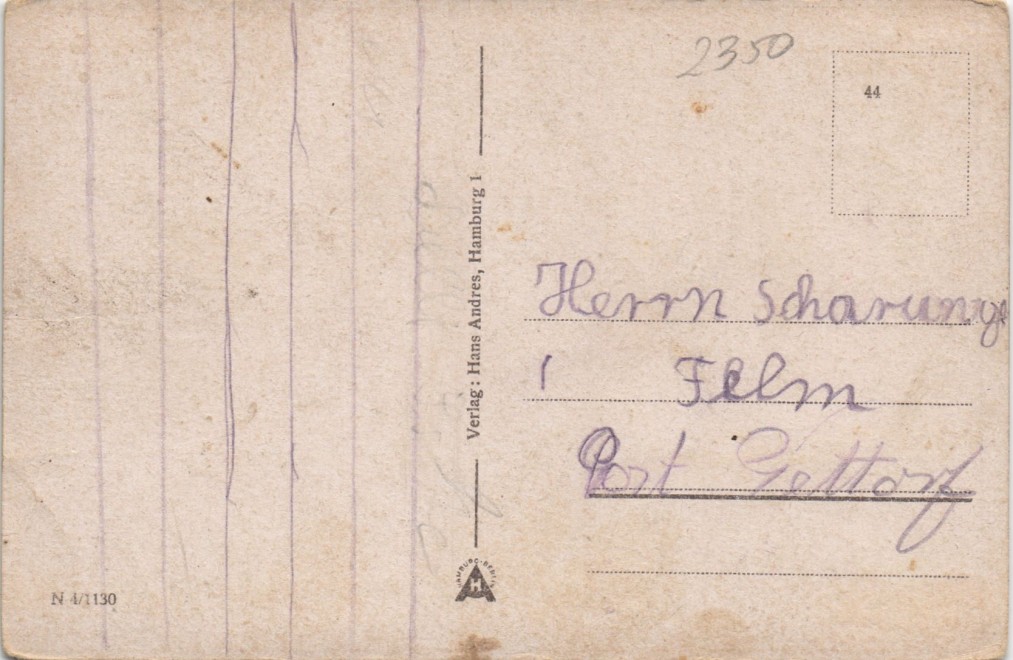 2350
44
Herrn Scharunge
Felm
Post Gettorf
Verlag: Hans Andres, Hamburg 1
HAMBURG-BERLIN
H
N 4/1130